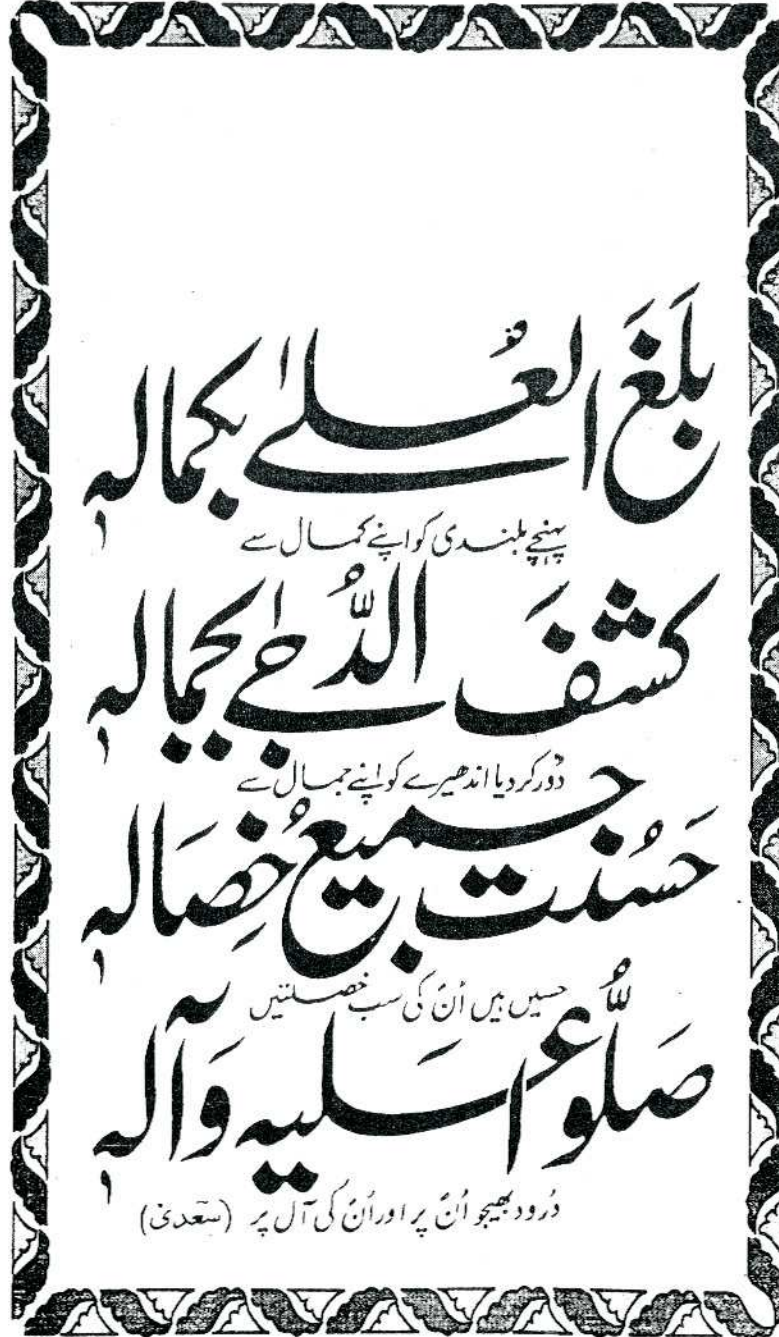 بَلَغَ العُلےٰ بکمالہٖ
پہنچے بلندی کو اپنے کمال سے
کشفَ الدُّجےٰ بجمالہٖ
دُور کر دیا اندھیرے کو اپنے جمال سے
حَسُنَت جمیعُ خِصَالہٖ
حسیں ہیں اُنؐ کی سب خصلتیں
صَلُّوا عَلیہ وَآلہٖ
دُرود بھیجو اُنؐ پر اور اُنؐ کی آل پر (سعدیؒ)